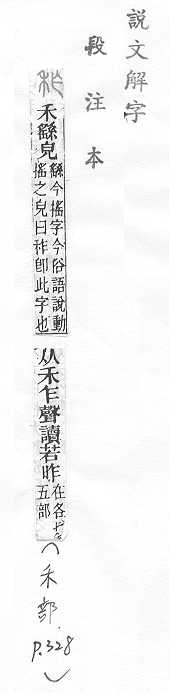 說文解字
段注本
秨
禾䌛皃
䌛今搖字今俗語說動
搖之皃曰秨卽此字也
从禾乍聲讀若昨
在各切
五部
(禾部. P.328)